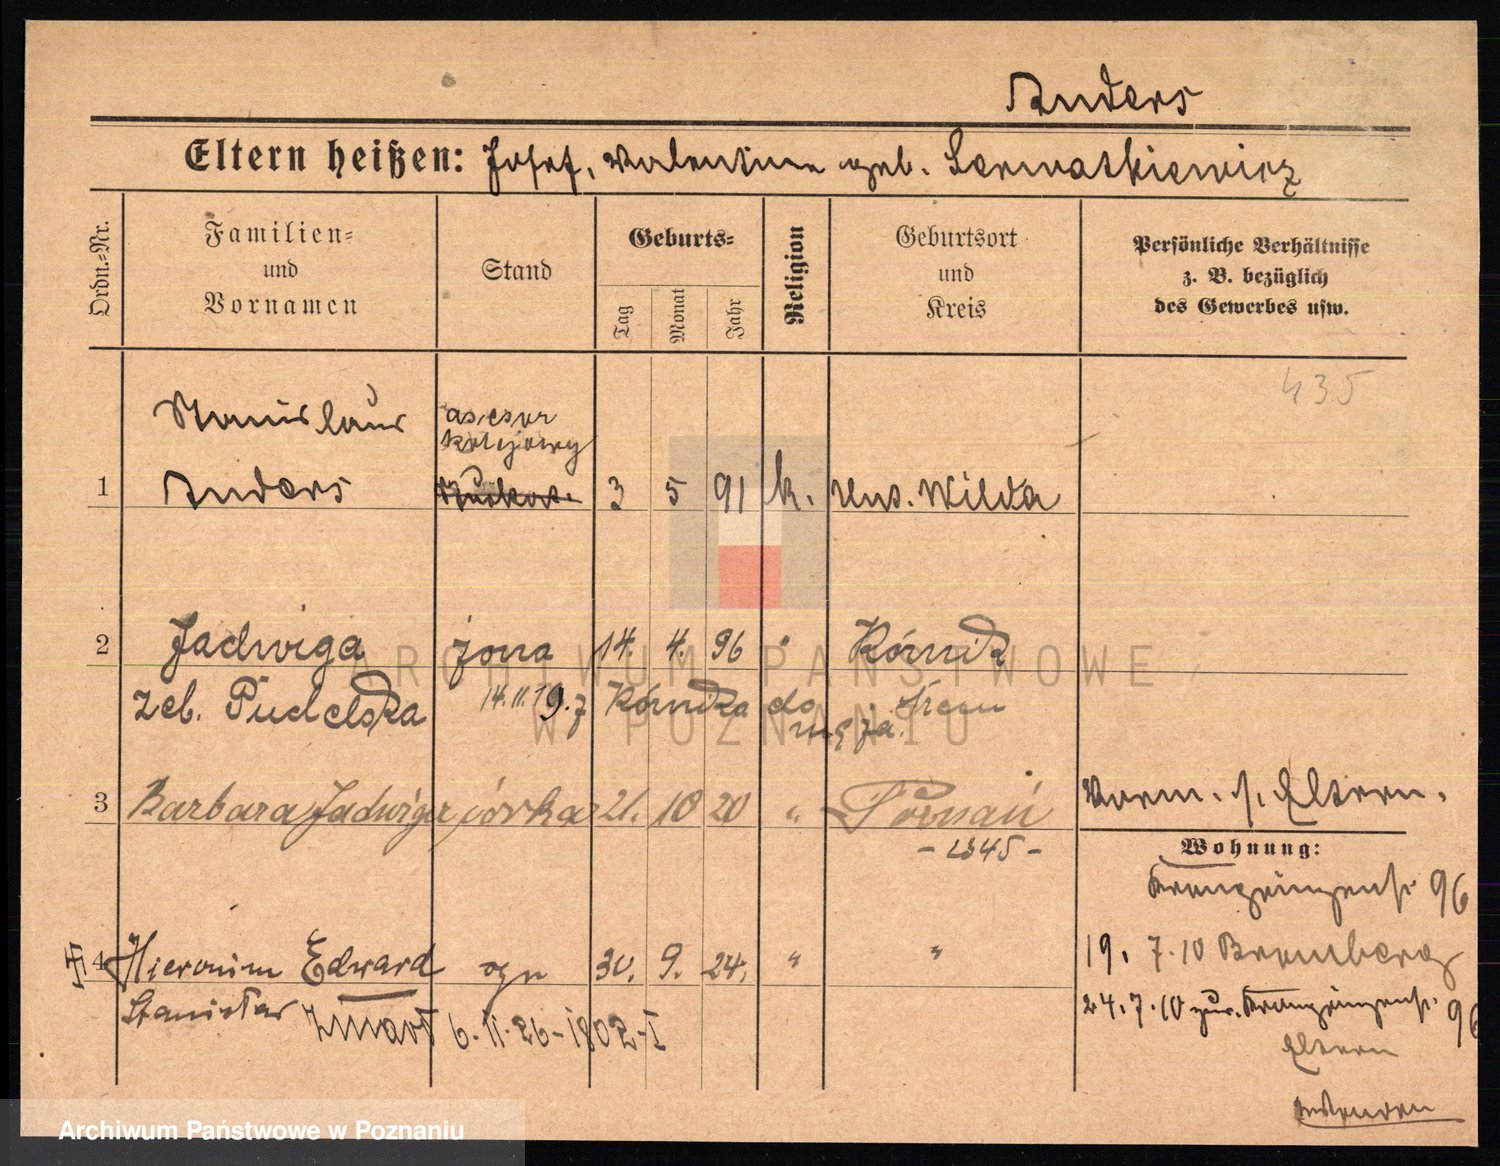 Anders
Eltern heißen: Josef, Valentine geb. Lewnatkiewicz
Ordn.-Nr.
Familien-
und
Vornamen
Stand
Geburts-
Tag
Monat
Jahr
Religion
Geburtsort
und
Kreis
Persönliche Verhältnisse
z. B. bezüglich
des Gewerbes usw.
435
Stanislaus
asesor
kolejowy
1 Anders 3 5 91 k. Wilda
2 Jadwiga żona 14. 4. 96 " Kórnik
zeb. Pudelska 14.11.19. z Kórnika do męża. Śrem
3 Barbara Jadwiga córka 21. 10 20 " Poznań
- 2345 -
Vorm. s. Eltern.
Wohnung:
Kronprinzenstr. 96
19. 7.10 Bromberg
24.7.10 zur. Kronprinzenstr. 96
Eltern
4 Hieronim Edward syn 30. 9. 24. " "
Stanisław zmarł 6.11.26-1802-I
ARCHIWUM PAŃSTWOWE
W POZNANIU
Archiwum Państwowe w Poznaniu